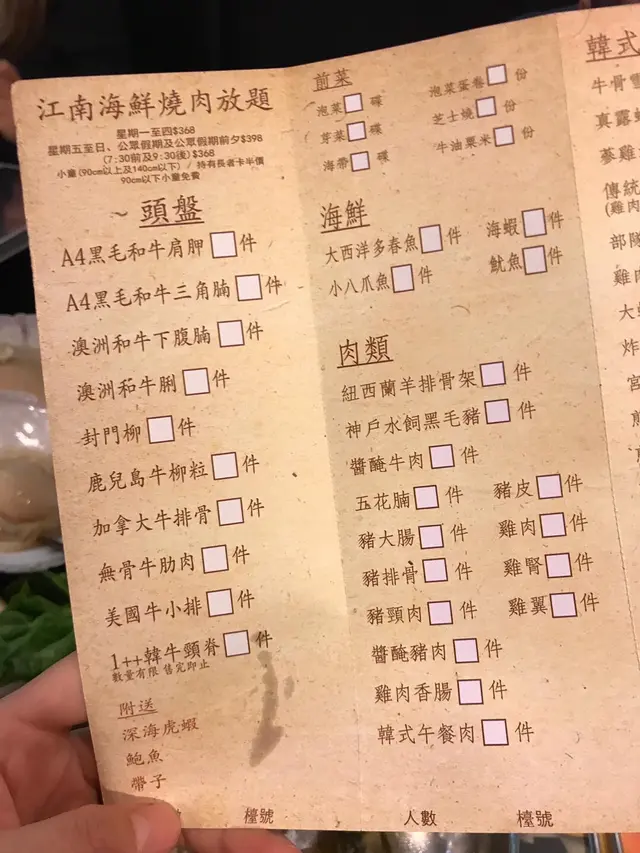 江南海鮮燒肉放題
星期一至四$368
星期五至日、公眾假期及公眾假期前夕$398
(7:30前及9:30後)$368
小童(90cm以上及140cm以下) / 持有長者卡半價
90cm以下小童免費
~ 頭盤
A4黑毛和牛肩胛 件
A4黑毛和牛三角腩 件
澳洲和牛下腹腩 件
澳洲和牛脷 件
封門柳 件
鹿兒島牛柳粒 件
加拿大牛排骨 件
無骨牛肋肉 件
美國牛小排 件
1++韓牛頸脊 件
數量有限 售完即止
附送
深海虎蝦
鮑魚
帶子
檯號
前菜
泡菜 碟 泡菜蛋卷 份
芽菜 碟 芝士燒 份
海帶 碟 牛油粟米 份
海鮮
大西洋多春魚 件 海蝦 件
小八爪魚 件 魷魚 件
肉類
紐西蘭羊排骨架 件
神戶水飼黑毛豬 件
醬醃牛肉 件
五花腩 件 豬皮 件
豬大腸 件 雞肉 件
豬排骨 件 雞腎 件
豬頸肉 件 雞翼 件
醬醃豬肉 件
雞肉香腸 件
韓式午餐肉 件
人數 檯號
韓式
牛骨
真露
蔘雞
傳統
(雞肉
部隊
雞肉
大
炸
宮